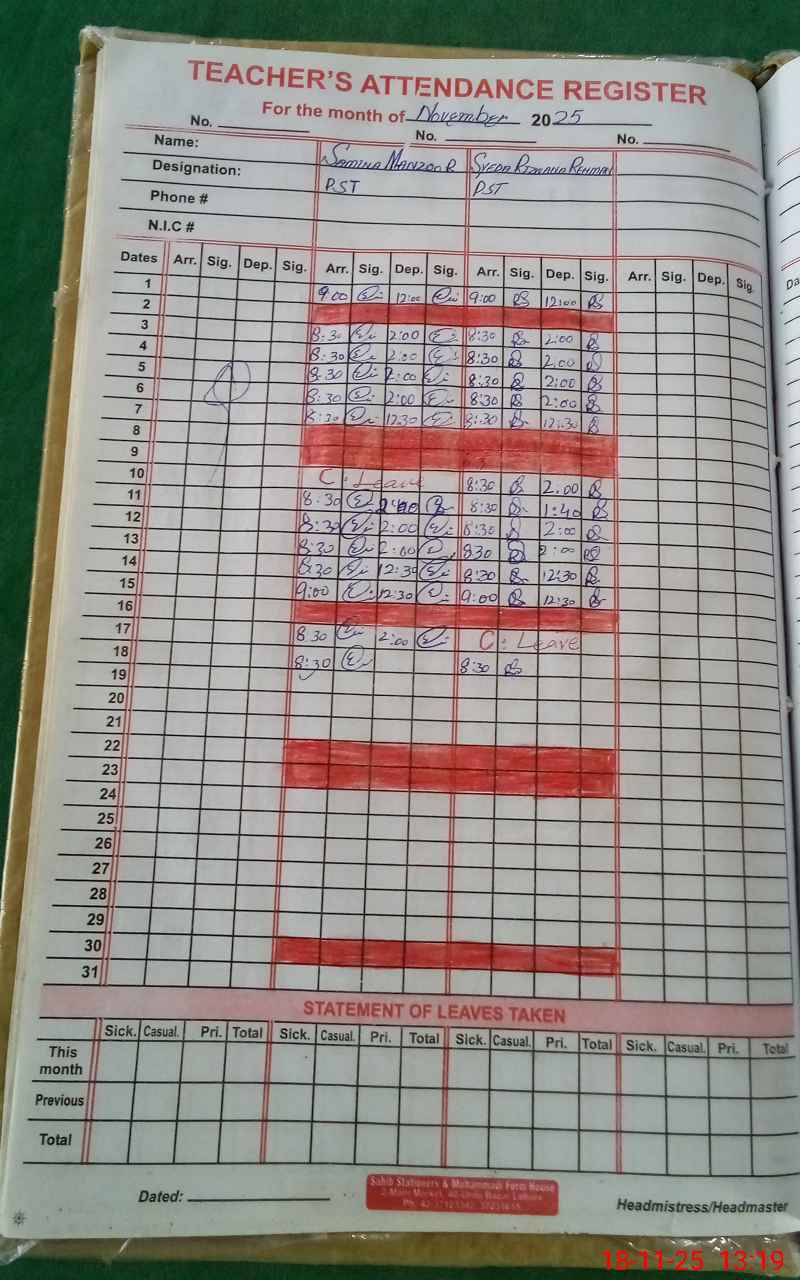 TEACHER'S ATTENDANCE REGISTER
For the month of November 2025
No. No. No.
Name: SAMINA MANZOOR SYEDA RIZWANA REHMAN
Designation: PST PST
Phone #
N.I.C #
Dates Arr. Sig. Dep. Sig. Arr. Sig. Dep. Sig. Arr. Sig. Dep. Sig. Arr. Sig. Dep. Sig.
1 9:00 12:00 9:00 12:00
2
3 8:30 2:00 8:30 2:00
4 8:30 2:00 8:30 2.00
5 8:30 2:00 8:30 2:00
6 8:30 2:00 8:30 2:00
7 8:30 12:30 8:30 12:30
8
9
10 C. Leave 8:30 2.00
11 8:30 8:30 1:40
12 8:30 2:00 8:30 2:00
13 8:30 2:00 830 2:00
14 8:30 12:30 8:30 12:30
15 9:00 12:30 9:00 12:30
16
17 8:30 2:00 C. Leave
18 8:30 8:30
19
20
21
22
23
24
25
26
27
28
29
30
31
STATEMENT OF LEAVES TAKEN
Sick. Casual. Pri. Total Sick. Casual. Pri. Total Sick. Casual. Pri. Total Sick. Casual. Pri. Total
This month
Previous
Total
Sahib Stationers & Mohammadi Form House
2-Main Market, 40-Urdu Bazar Lahore
Dated: Headmistress/Headmaster
18-11-25 13:19